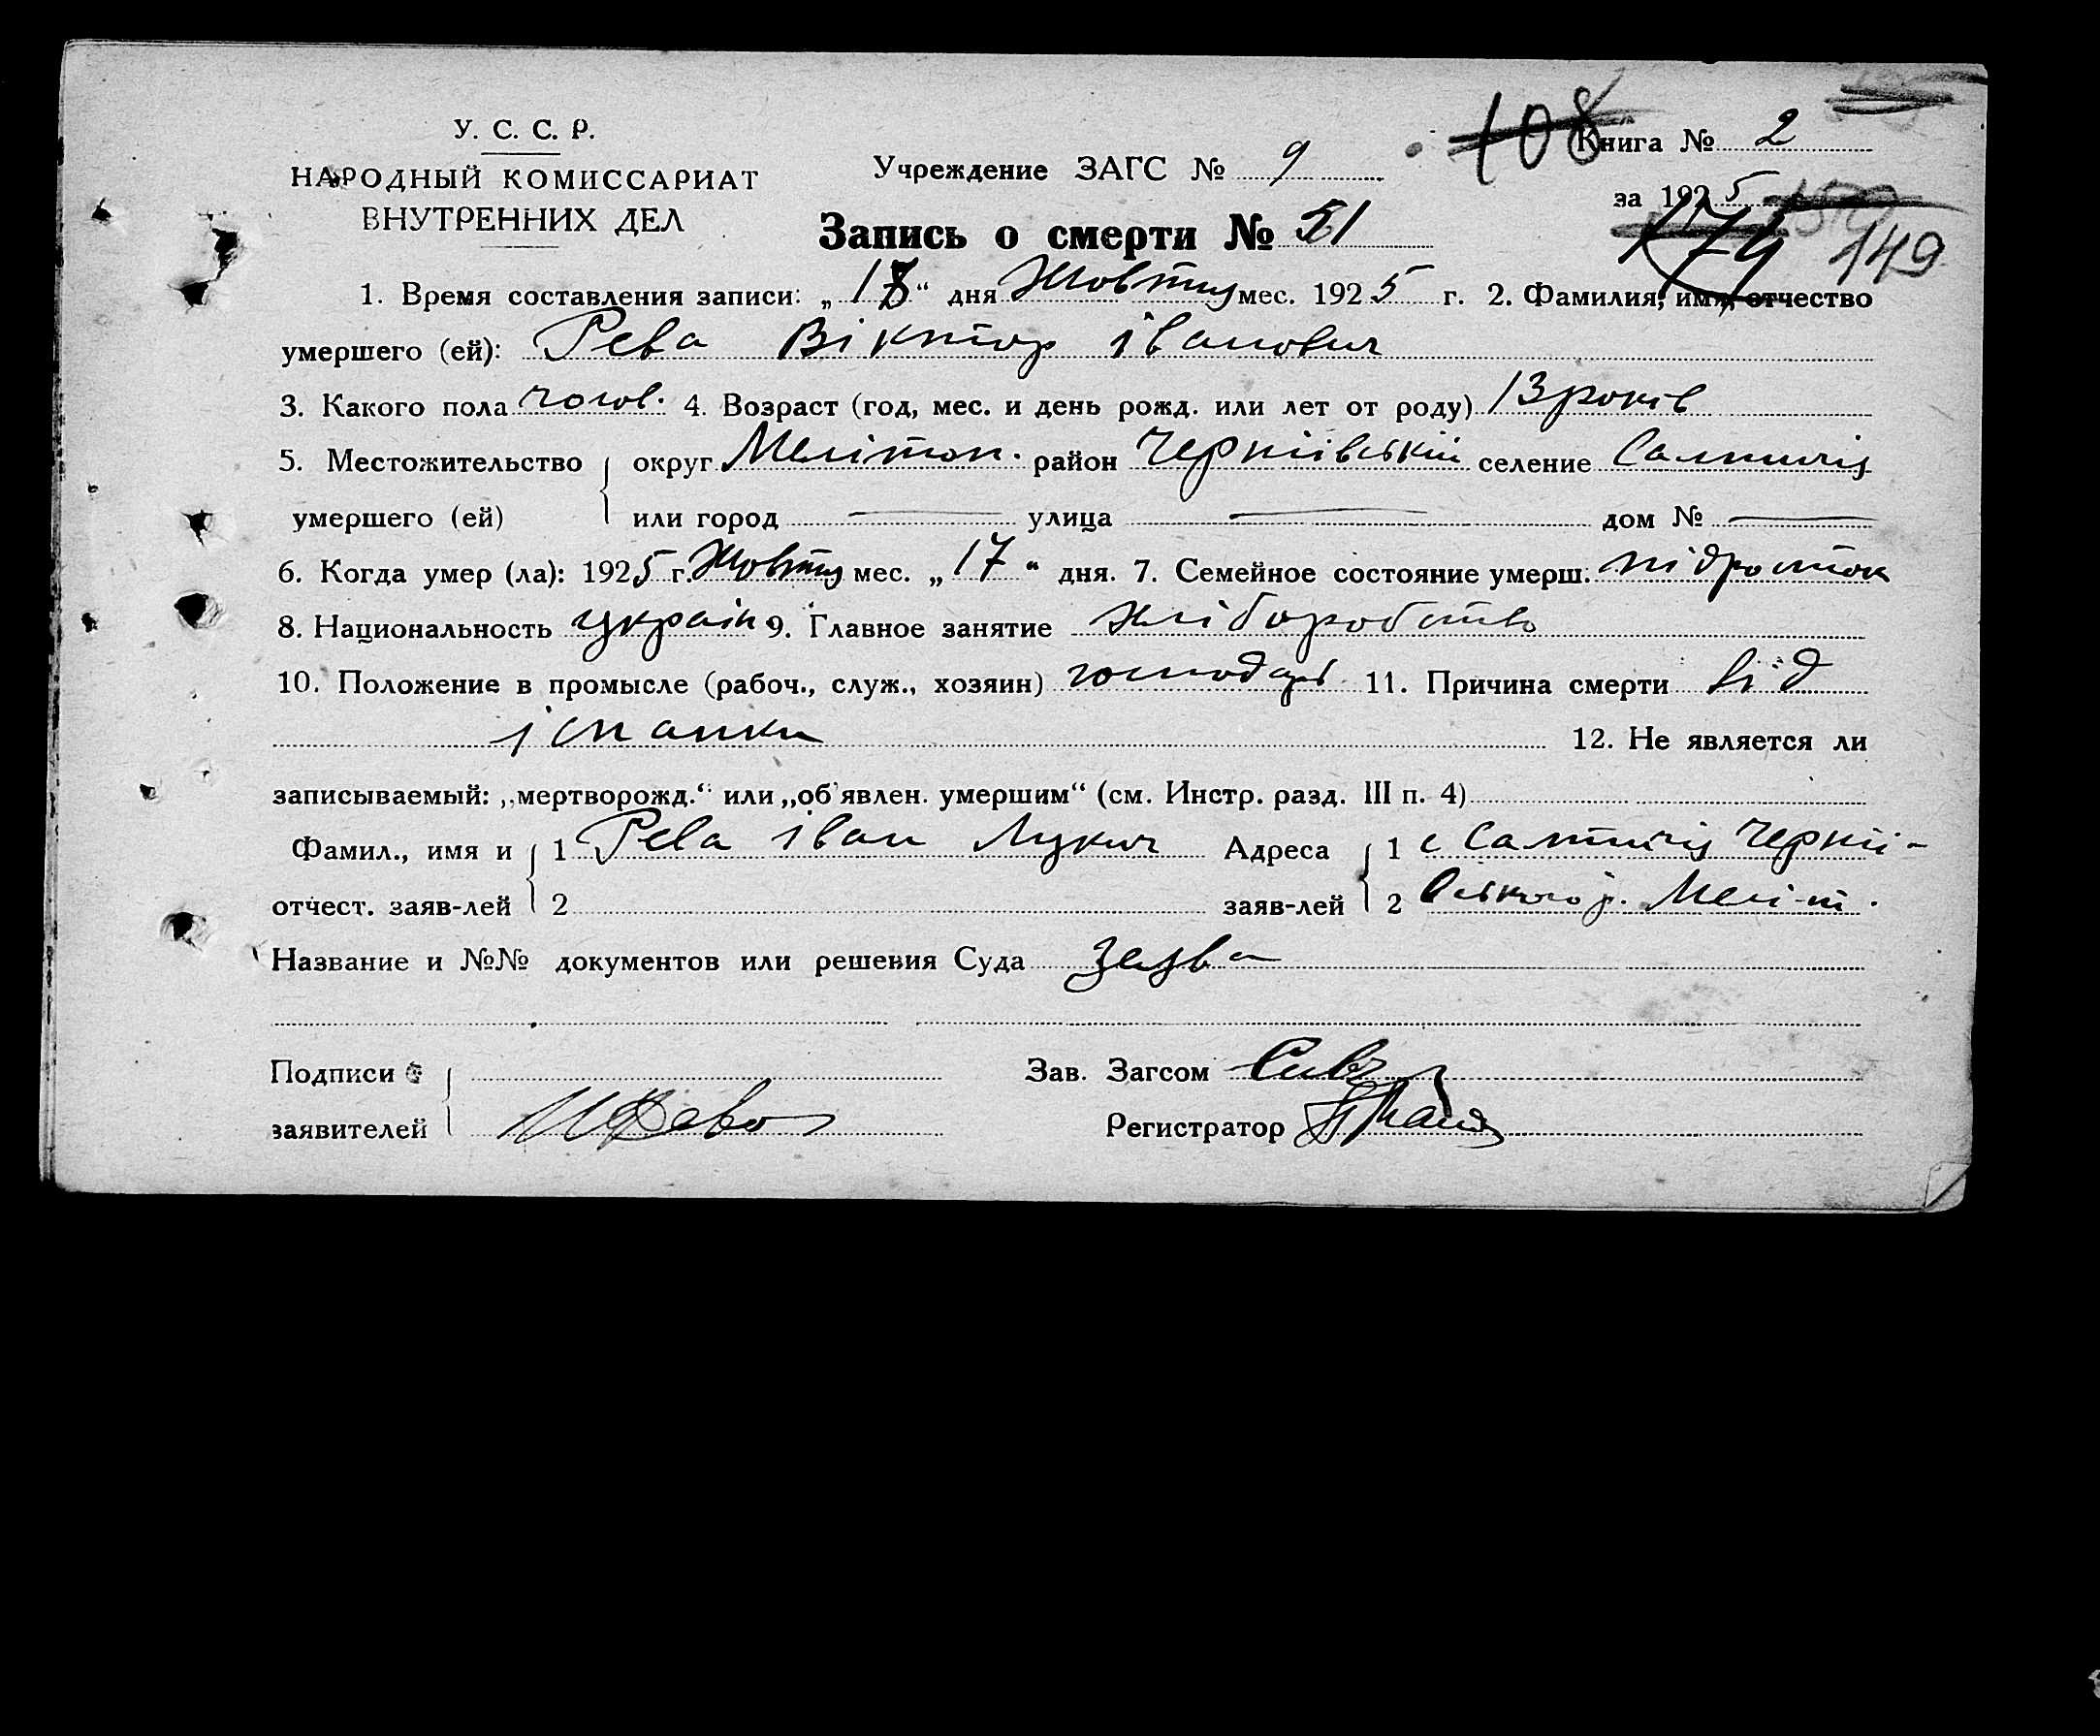 У. С. С. Р.
НАРОДНЫЙ КОМИССАРИАТ
ВНУТРЕННИХ ДЕЛ
Учреждение ЗАГС № 9
108
Книга № 2
за 1925
174 149
Запись о смерти № 51
1. Время составления записи: „18“ дня Жовтня мес. 1925 г. 2. Фамилия, имя, отчество
умершего (ей): Рева Віктор Іванович
3. Какого пола чолов. 4. Возраст (год, мес. и день рожд. или лет от роду) 13 років
5. Местожительство округ Мелітоп. район Чернііvський селение Салтичія
умершего (ей) или город — улица — дом № —
6. Когда умер (ла): 1925 г. Жовтня мес. „17“ дня. 7. Семейное состояние умерш. підросток
8. Национальность україн 9. Главное занятие хліборобство
10. Положение в промысле (рабоч., служ., хозяин) господарь 11. Причина смерти від
іспанки 12. Не является ли
записываемый: „мертворожд.“ или „об'явлен. умершим“ (см. Инстр. разд. III п. 4)
Фамил., имя и 1 Рева Іван Лукич Адреса 1 с Салтичія Черніі-
отчест. заяв-лей 2 заяв-лей 2 вського р. Меліт.
Название и №№ документов или решения Суда заява
Подписи Зав. Загсом
заявителей И Рева Регистратор